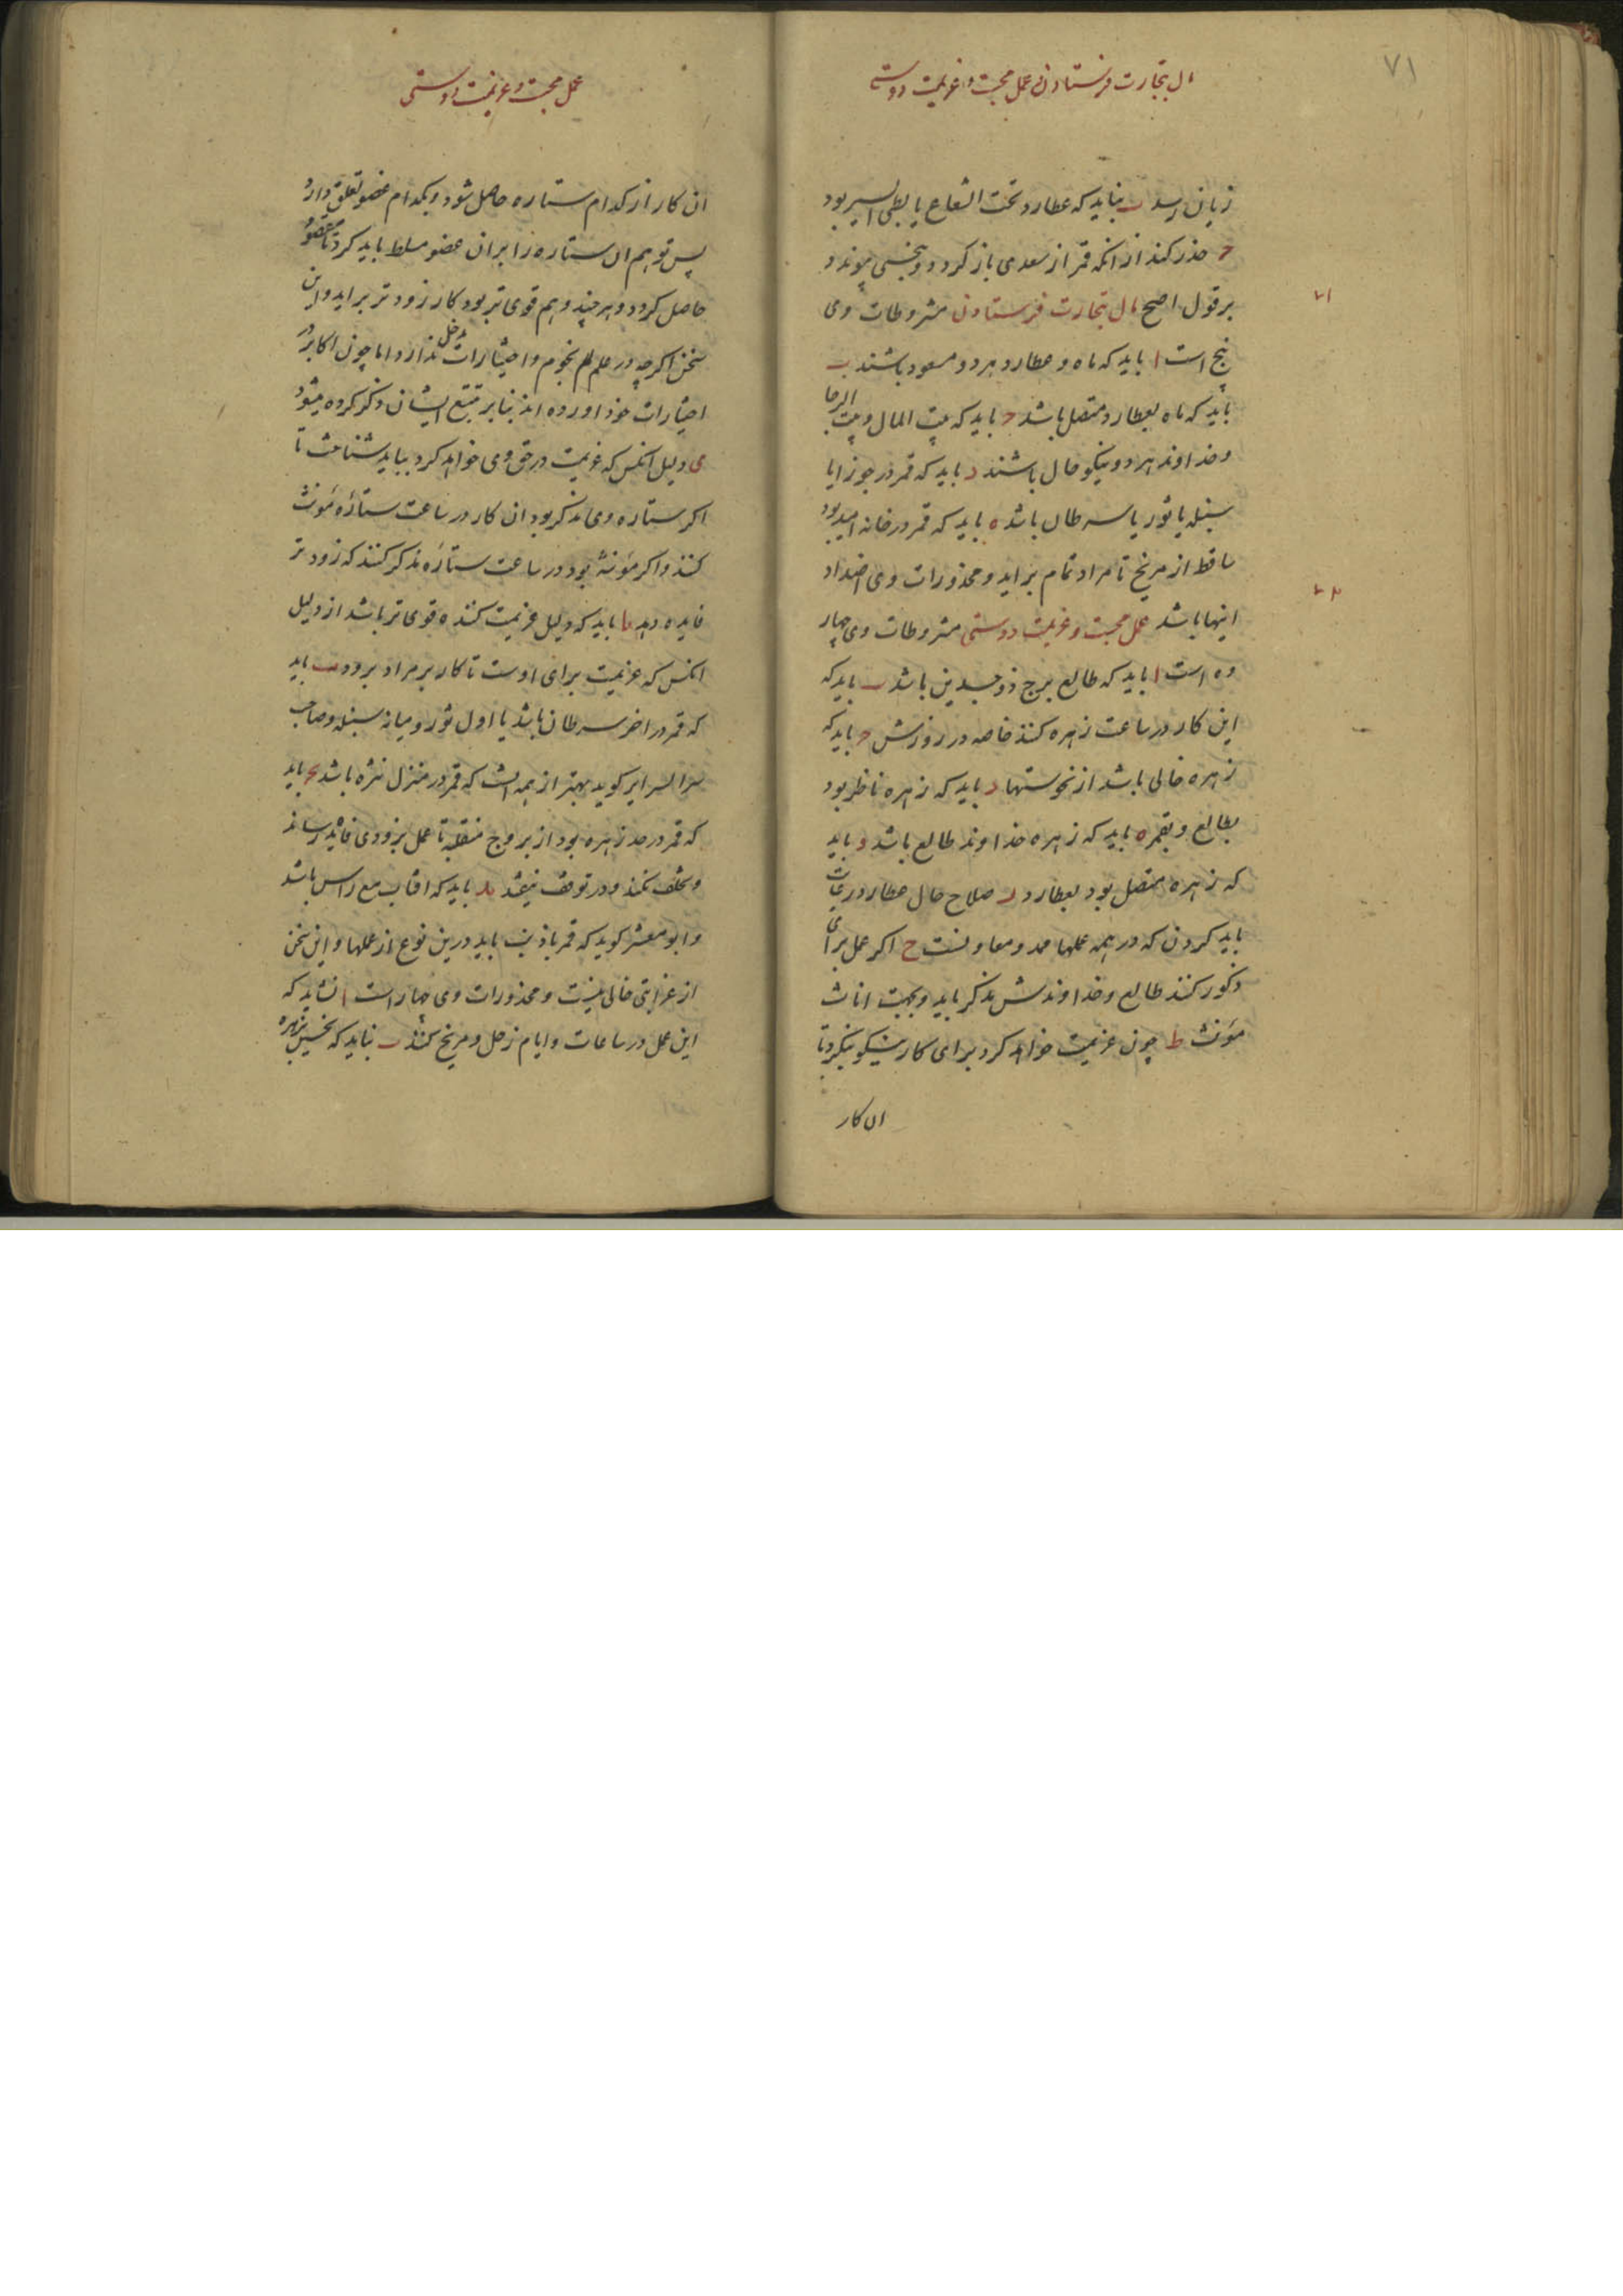 ۷۱
مال بتجارت فرستادن عمل محبت و عزیمت دوستی
زیان رسد ب نباید که عطارد تحت الشعاع یا بطی السیر بود
ج حذر کند از انکه قمر از سعدی باز کردد و بنحسی پیوندد
بر قول اصح مال بتجارت فرستادن مشروطات وی
پنج است ا باید که ماه و عطارد هر دو مسعود باشند ب
باید که ماه بعطارد متصل باشد ج باید که بیت المال و بیت الرجا
و خداوند هر دو نیکو حال باشند د باید که قمر در جوزا یا
سنبله یا ثور یا سرطان باشد ه باید که قمر در خانه امید بود
ساقط از مریخ تا مراد تمام براید و محذورات وی اضداد
اینها باشد عمل محبت و عزیمت دوستی مشروطات وی چهار
ده است ا باید که طالع برج ذو جسدین باشد ب باید که
این کار در ساعت زهره کنند خاصه در روزش ج باید که
زهره خالی باشد از نحوستها د باید که زهره ناظر بود
بطالع و بقمر ه باید که زهره خداوند طالع باشد و باید
که زهره متصل بود بعطارد ز صلاح حال عطارد رعایت
باید کردن که در همه عملها ممد و معاونست ح اکر عمل برای
ذکور کنند طالع و خداوندش مذکر باید و بجهت اناث
مؤنث ط چون عزیمت خواهد کرد برای کار نیکو بنکرد تا
ان کار
۷۱
۷۲
عمل محبت و عزیمت دوستی
ان کار از کدام ستاره حاصل شود و بکدام عضو تعلق دارد
پس توهم ان ستاره را بران عضو مسلط باید کرد تا مقصود
حاصل کردد و هر چند وهم قوی تر بود کار زودتر براید و این
سخن اکرچه در علم نجوم و اختیارات مدخل ندارد اما چون اکابر در
اختیارات خود اورده اند بنابر تتبع ایشان ذکر کرده میشود
ی دلیل انکس که عزیمت در حق وی خواهد کرد بباید شناخت تا
اکر ستاره وی مذکر بود ان کار در ساعت ستاره مؤنث
کنند و اکر مؤنث بود در ساعت ستاره مذکر کنند که زودتر
فایده دهد یا باید که دلیل عزیمت کننده قوی تر باشد از دلیل
انکس که عزیمت برای اوست تا کار بر مراد برود یب باید
که قمر در اخر سرطان باشد یا اول ثور و میانه سنبله و صاحب
سر السرایر کوید بهتر از همه انست که قمر در منزل نثره باشد یج باید
که قمر در حد زهره بود از بروج منقلبه تا عمل بزودی فایده رساند
و تخلف نکند و در توقف نیفتد ید باید که افتاب مع راس باشد
و ابو معشر کوید که قمر با ذنب باید درین نوع از عملها و این سخن
از غرابتی خالی نیست و محذورات وی چهار است ا نشاید که
این عمل در ساعات و ایام زحل و مریخ کنند ب نباید که نحسین بزهره